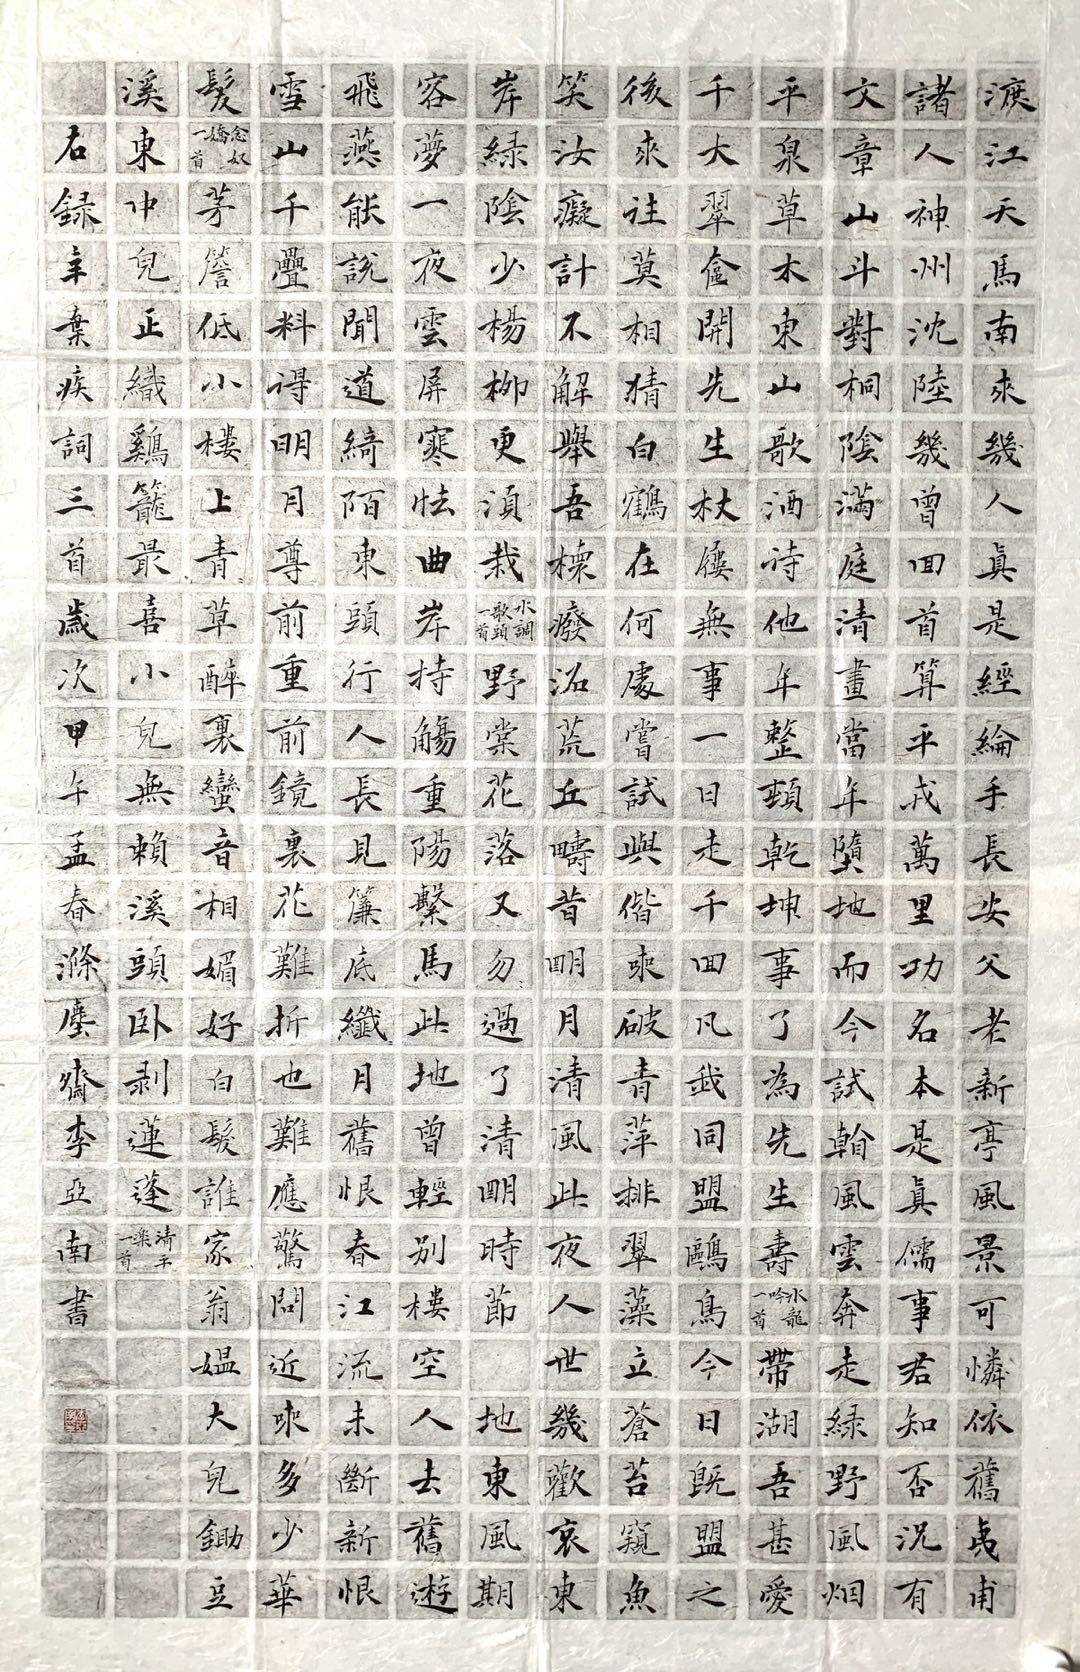 渡江天馬南來幾人真是經綸手長安父老新亭風景可憐依舊夷甫
諸人神州沈陸幾曾回首算平戎萬里功名本是真儒事君知否況有
文章山斗對桐陰滿庭清晝當年墮地而今試翰風雲奔走綠野風烟
平泉草木東山歌酒待他年整頓乾坤事了為先生壽水龍吟一首帶湖吾甚愛
千丈翠奩開先生杖屨無事一日走千回凡我同盟鷗鳥今日既盟之
後來往莫相猜白鶴在何處嘗試與偕來破青萍排翠藻立蒼苔窺魚
笑汝癡計不解舉吾杯廢沼荒丘疇昔明月清風此夜人世幾歡哀東
岸綠陰少楊柳更須栽水調歌頭一首野棠花落又匆過了清明時節地東風欺
客夢一夜雲屏寒怯曲岸持觴垂陽繫馬此地曾輕別樓空人去舊遊
飛燕能說聞道綺陌東頭行人長見簾底纖月舊恨春江流未斷新恨
雪山千疊料得明月尊前重前鏡裏花難折也難應驚問近來多少華
髮念奴嬌一首茅簷低小樓上青草醉裏蠻音相媚好白髮誰家翁媼大兒鋤豆
溪東中兒正織鷄籠最喜小兒無賴溪頭臥剝蓮蓬清平樂一首
右錄辛棄疾詞三首歲次甲午孟春滌塵齋李亞南書